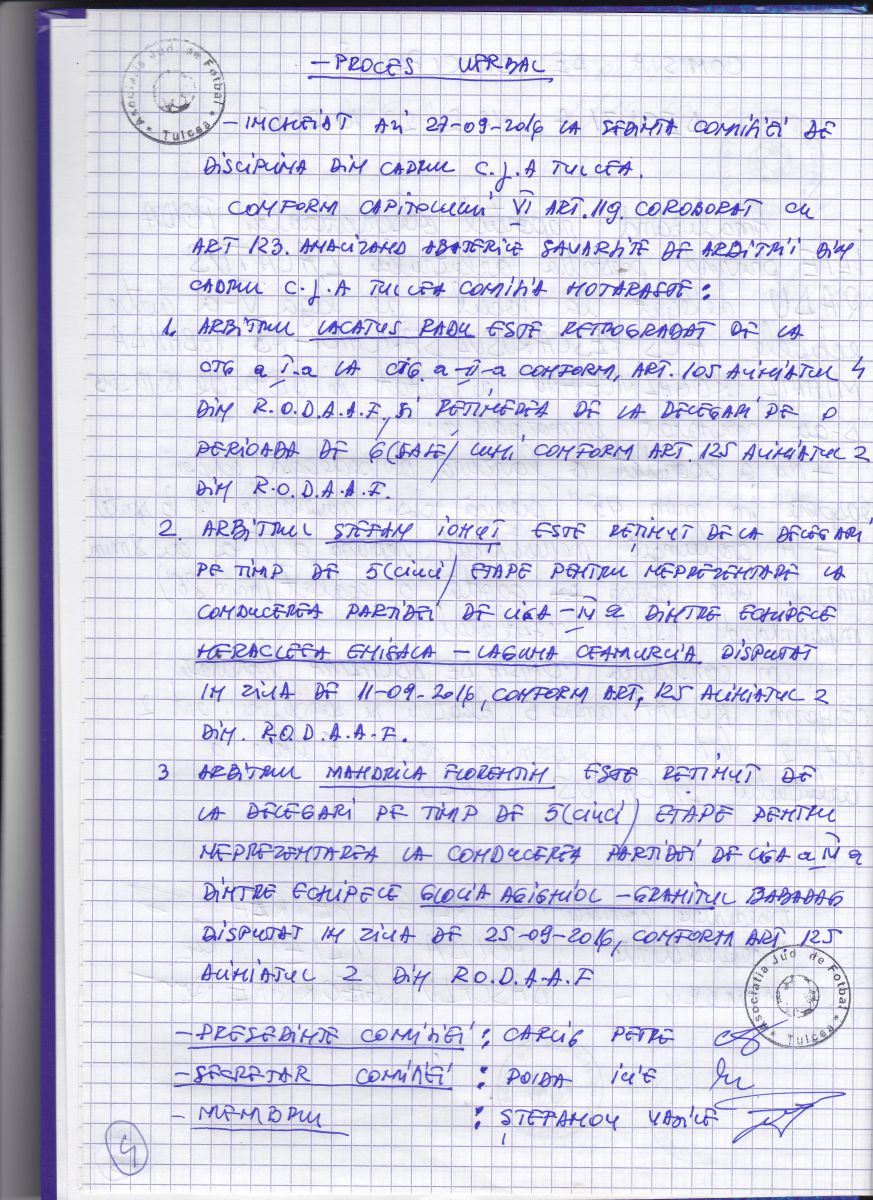 Asociatia Jud de Fotbal * Tulcea *
- PROCES VERBAL
- INCHEIAT AZI 27-09-2016 LA SEDINTA COMISIEI DE
DISCIPLINA DIN CADRUL C.J.A TULCEA.
CONFORM CAPITOLULUI VI ART.119. COROBORAT CU
ART 123. ANALIZAND ABATERILE SAVARSITE DE ARBITRII DIN
CADRUL C.J.A TULCEA COMISIA HOTARASTE:
1. ARBITRUL LACATUS RADU ESTE RETROGRADAT DE LA
CTG a I-a LA CTG. a-II-a CONFORM, ART.105 ALINIATUL 4
DIN R.O.D.A.A.F, SI RETINEREA DE LA DELEGARI PE O
PERIOADA DE 6(SASE) LUNI CONFORM ART.125 ALINIATUL 2
DIN R.O.D.A.A.F.
2. ARBITRUL STEFAN IONUT ESTE RETINUT DE LA DELEGARI
PE TIMP DE 5(cinci) ETAPE PENTRU NEPREZENTARE LA
CONDUCEREA PARTIDEI DE LIGA -IV a DINTRE ECHIPELE
HERACLEEA ENISALA - LAGUNA CEAMURLIA. DISPUTAT
IN ZIUA DE 11-09-2016, CONFORM ART, 125 ALINIATUL 2
DIN. R.O.D.A.A.F.
3 ARBITRUL MANDRILA FLORENTIN ESTE RETINUT DE
LA DELEGARI PE TIMP DE 5(cinci) ETAPE PENTRU
NEPREZENTAREA LA CONDUCEREA PARTIDEI DE LIGA a IV a
DINTRE ECHIPELE GLORIA AGIGHIOL - GRANITUL BABADAG
DISPUTAT IN ZIUA DE 25-09-2016, CONFORM ART. 125
ALINIATUL 2 DIN R.O.D.A.A.F
Asociatia Jud de Fotbal * Tulcea *
- PRESEDINTE COMISIEI: PETRE
- SECRETAR COMISIEI: POIDA ILIE
- MEMBRU : STEFANOV VASILE
4